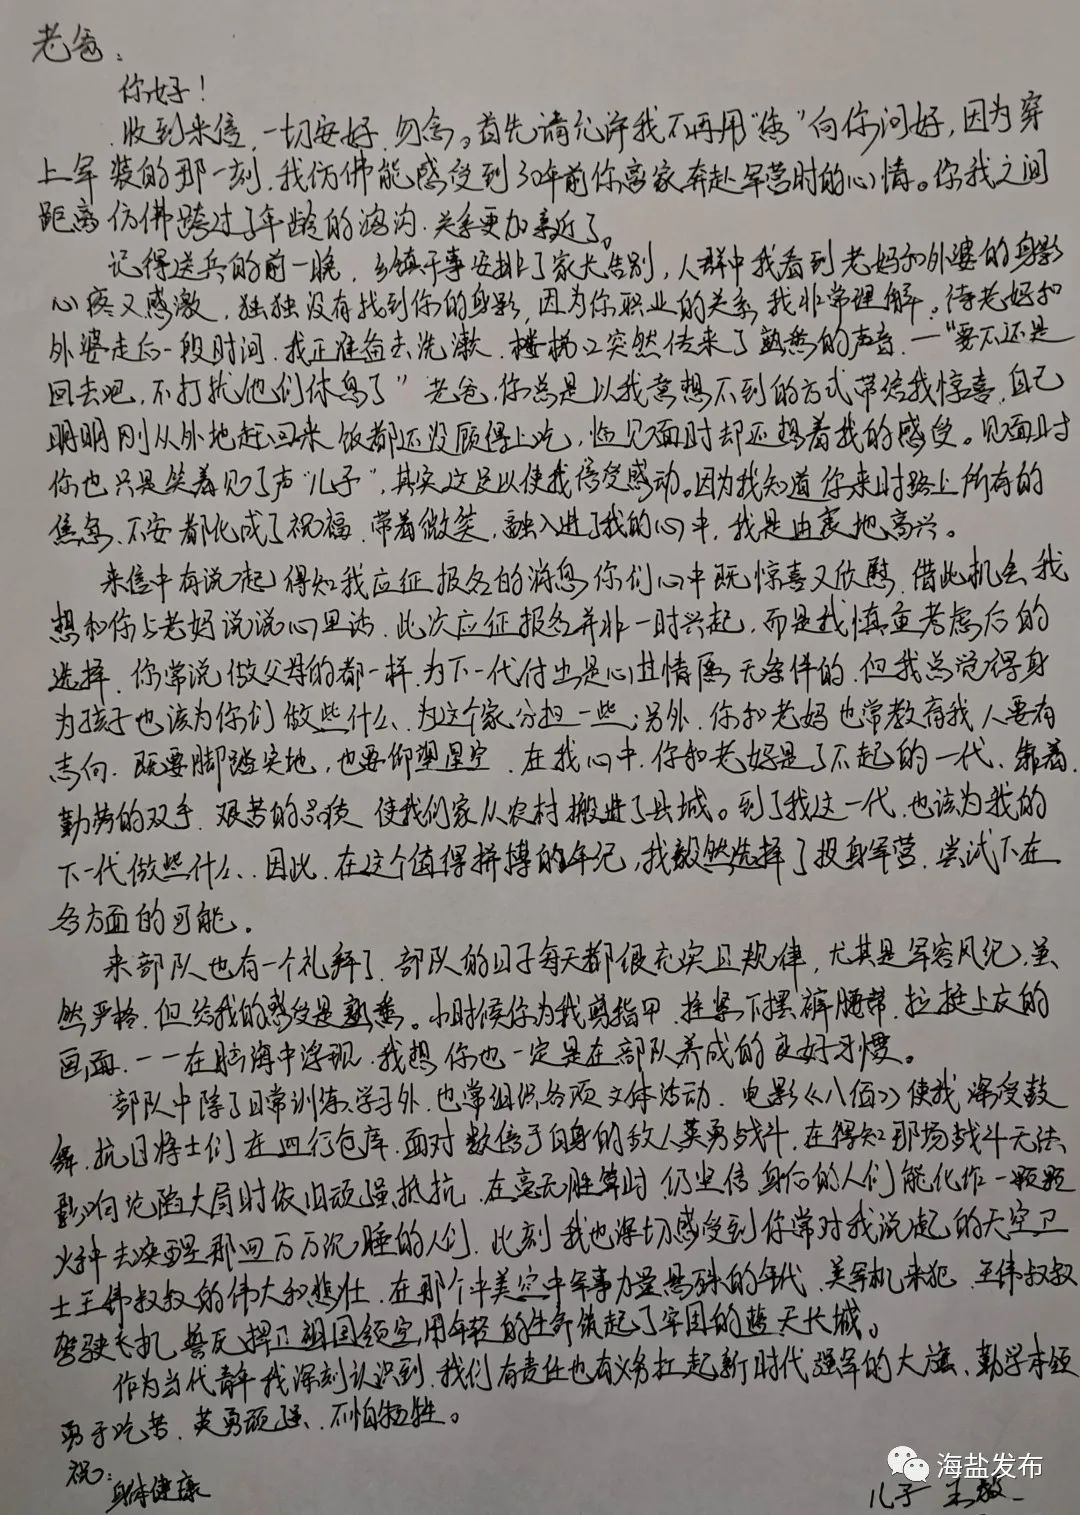 老爸：
你好！
收到来信，一切安好，勿念。首先请允许我不再用“您”向你问好，因为穿
上军装的那一刻，我仿佛能感受到30年前你离家奔赴军营时的心情。你我之间
距离仿佛跨过了年龄的鸿沟，关系更加亲近了。
记得送兵的前一晚，乡镇干事安排了家长告别，人群中我看到老妈和外婆的身影
心疼又感激，独独没有找到你的身影，因为你职业的关系，我非常理解。待老妈和
外婆走后一段时间，我正准备去洗漱，楼梯口突然传来了熟悉的声音，—“要不还是
回去吧，不打扰他们休息了”老爸，你总是以我意想不到的方式带给我惊喜，自己
明明刚从外地赶回来饭都还没顾得上吃，临见面时却还想着我的感受。见面时
你也只是笑着见了声“儿子”，其实这足以使我倍受感动。因为我知道你来时路上所有的
焦急、不安都化成了祝福，带着微笑，融入进了我的心中，我是由衷地高兴。
来信中有说起得知我应征报名的消息你们心中既惊喜又欣慰，借此机会我
想和你与老妈说说心里话，此次应征报名并非一时兴起，而是我慎重考虑后的
选择，你常说做父母的都一样，为下一代付出是心甘情愿无条件的，但我总觉得身
为孩子也该为你们做些什么、为这个家分担一些；另外，你和老妈也常教育我人要有
志向，既要脚踏实地，也要仰望星空，在我心中，你和老妈是了不起的一代，靠着
勤劳的双手，艰苦的品质，使我们家从农村搬进了县城。到了我这一代，也该为我的
下一代做些什么，因此，在这个值得拼搏的年纪，我毅然选择了投身军营，尝试下在
各方面的可能。
来部队也有一个礼拜了，部队的日子每天都很充实且规律，尤其是军容风纪，虽
然严格，但给我的感受是熟悉。小时候你为我剪指甲，拴紧下摆裤腰带，拉挺上衣的
画面，一一在脑海中浮现，我想你也一定是在部队养成的良好习惯。
部队中除了日常训练、学习外，也常组织各项文体活动，电影《八佰》使我深受鼓
舞，抗日将士们在四行仓库，面对数倍于自身的敌人英勇战斗，在得知那场战斗无法
影响沦陷大局时依旧顽强抵抗，在毫无胜算时，仍坚信身后的人们能化作一颗颗
火种去唤醒那四万万沉睡的人们，此刻我也深切感受到你常对我说起的天空卫
士王伟叔叔的伟大和悲壮，在那个中美空中军事力量悬殊的年代，美军机来犯，王伟叔叔
驾驶飞机，誓死捍卫祖国领空，用年轻的生命筑起了牢固的蓝天长城。
作为当代青年我深刻认识到，我们有责任也有义务扛起新时代强军的大旗，勤学本领
勇于吃苦，英勇顽强，不怕牺牲。
祝：
身体健康
儿子 王
海盐发布